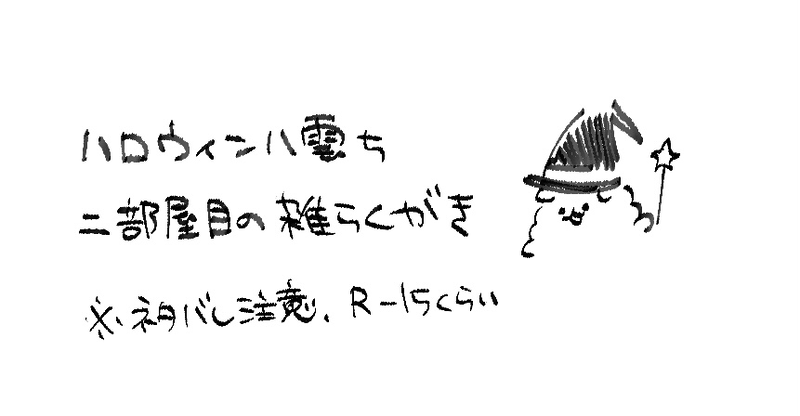 ハロウィン八雲ち
二部屋目の雑らくがき
※ネタバレ注意、R-15くらい